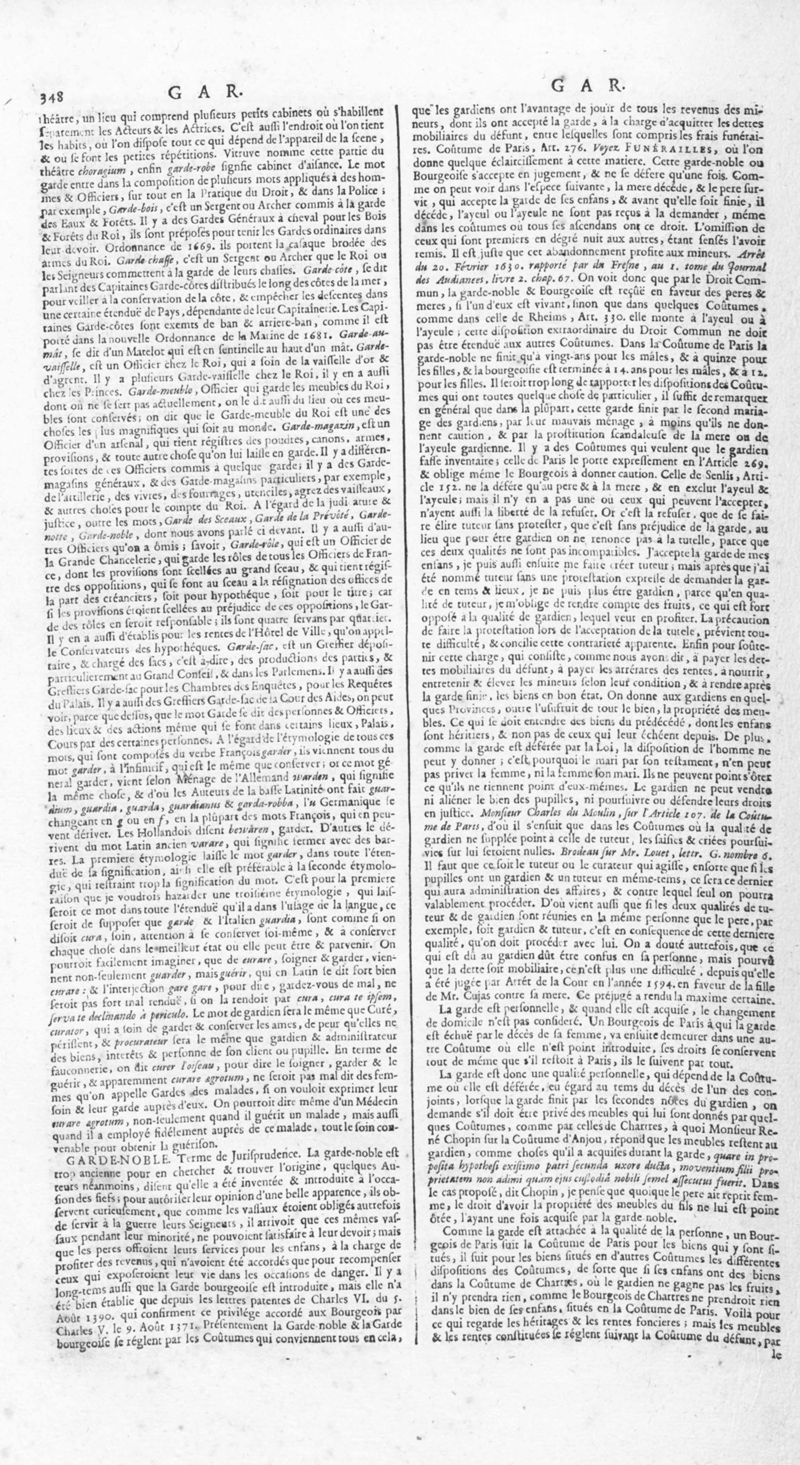 348
G A R.
théâtre, un lieu qui comprend plusieurs petits cabinets où s'habillent
séparement les Acteurs & les Actrices. C'est aussi l'endroit où l'on tient
les habits, où l'on dispose tout ce qui dépend de l'appareil de la scene,
& où se font les petites répétitions. Vitruve nomme cette partie du
théâtre choragium, enfin garde-robe signifie cabinet d'aisance. Le mot
garde entre dans la composition de plusieurs mots appliqués à des hom-
mes & Officiers, sur tout en la Pratique du Droit, & dans la Police;
par exemple, Garde-bois, c'est un Sergent ou Archer commis à la garde
des Eaux & Forêts. Il y a des Gardes Généraux à cheval pour les Bois
& Forêts du Roi, ils sont préposés pour tenir les Gardes ordinaires dans
leur devoir. Ordonnance de 1669. ils portent la casaque brodée des
armes du Roi. Garde chasse, c'est un Sergent ou Archer que le Roi ou
les Seigneurs commettent à la garde de leurs chasses. Garde-côte, se dit
parlant des Capitaines Garde-côtes distribués le long des côtes de la mer,
pour veiller à la conservation de la côte, & empêcher les descentes dans
une certaine étenduë de Pays, dépendante de leur Capitainerie. Les Capi-
taines Garde-côtes sont exemts de ban & arriere-ban, comme il est
porté dans la nouvelle Ordonnance de la Marine de 1681. Garde-au-
mât, se dit d'un Matelot qui est en sentinelle au haut d'un mât. Garde-
vaisselle, est un Officier chez le Roi, qui a soin de la vaisselle d'or &
d'argent. Il y a plusieurs Garde-vaisselle chez le Roi, il y en a aussi
chez les Princes. Garde-meuble, Officier qui garde les meubles du Roi,
dont on ne se sert pas actuellement, on le dit aussi du lieu où ces meu-
bles sont conservés; on dit que le Garde-meuble du Roi est une des
choses les plus magnifiques qui soit au monde. Garde-magazin, est un
Officier d'un arsenal, qui tient régistres des poudres, canons, armes,
provisions, & toute autre chose qu'on lui laisse en garde. Il y a differen-
tes sortes de ces Officiers commis à quelque garde; il y a des Garde-
magasins généraux, & des Garde-magasins particuliers, par exemple,
de l'artillerie, des vivres, des fourrages, utenciles, agrez des vaisseaux,
& autres choses pour le compte du Roi. A l'égard de la judicature &
justice, outre les mots, Garde des Sceaux, Garde de la Prévôté, Garde-
notte, Garde-noble, dont nous avons parlé ci devant. Il y a aussi d'au-
tres Officiers qu'on a ômis; savoir, Garde-rôle, qui est un Officier de
la Grande Chancelerie, qui garde les rôles de tous les Officiers de Fran-
ce, dont les provisions sont scellées au grand sceau, & qui tient régis-
tre des oppositions, qui se font au sceau à la résignation des offices de
la part des créanciers, soit pour hypothéque, soit pour le titre; car
si les provisions étoient scellées au préjudice de ces oppositions, le Gar-
de des rôles en seroit responsable; ils sont quatre servans par quartier.
Il y en a aussi d'établis pour les rentes de l'Hôtel de Ville, qu'on appel-
le Conservateurs des hypothéques. Garde-sac, est un Greffier déposi-
taire, & chargé des sacs, c'est à dire, des productions des parties, &
particulierement au Grand Conseil, & dans les Parlemens. Il y a aussi des
Greffiers Garde-sac pour les Chambres des Enquêtes, pour les Requêtes
du Palais. Il y a aussi des Greffiers Garde-sac de la Cour des Aides, on peut
voir, parce que dessus, que le mot Garde se dit des personnes & Officiers,
des lieux & des actions même qui se font dans certains lieux, Palais,
Cours par des certaines personnes. A l'égard de l'étymologie de tous ces
mots, qui sont composés du verbe François garder, ils viennent tous du
mot garder, à l'infinitif, qui est le même que conserver; or ce mot gé-
neral garder, vient selon Ménage de l'Allemand warden, qui signifie
la même chose, & d'où les Auteurs de la basse Latinité ont fait guar-
dium, guardia, guarda, guardianus & garda-robba, l'u Germanique se
changeant en g ou en f, en la plûpart des mots François, qui en peu-
vent dériver. Les Hollandois disent bewären, garder. D'autres le dé-
rivent du mot Latin ancien varare, qui signifie fermer avec des bar-
res. La premiere étymologie laisse le mot garder, dans toute l'éten-
duë de sa signification, ainsi elle est préférable à la seconde étymolo-
gie, qui restraint trop la signification du mot. C'est pour la premiere
raison que je voudrois hazarder une troisiéme étymologie, qui lais-
seroit ce mot dans toute l'étenduë qu'il a dans l'usage de la langue, ce
seroit de supposer que garde & l'Italien guardia, sont comme si on
disoit cura, soin, attention à se conserver soi-même, & à conserver
chaque chose dans le meilleur état où elle peut être & parvenir. On
pourroit facilement imaginer, que de curare, soigner & garder, vien-
nent non-seulement guarder, mais guérir, qui en Latin se dit fort bien
curare: & l'interjection gare gare, pour dire, gardez-vous de mal, ne
seroit pas fort mal renduë, si on la rendoit par cura, cura te ipsem,
serva te declinando à periculo. Le mot de gardien sera le même que Curé,
curator, qui a soin de garder & conserver les ames, de peur qu'elles ne
périssent, & procurateur sera le même que gardien & administrateur
des biens, interêts & personne de son client ou pupille. En terme de
fauconnerie, on dit curer l'oiseau, pour dire le soigner, garder & le
guérir, & apparemment curare ægrotum, ne seroit pas mal dit des fem-
mes qu'on appelle Gardes des malades, si on vouloit exprimer leur
soin & leur garde auprès d'eux. On pourroit dire même d'un Médecin
curare ægrotum, non-seulement quand il guérit un malade, mais aussi
quand il a employé fidélement auprès de ce malade, tout le soin con-
venable pour obtenir la guérison.
GARDE-NOBLE. Terme de Jurisprudence. La garde-noble est
trop ancienne pour en chercher & trouver l'origine, quelques Au-
teurs néanmoins, disent qu'elle a été inventée & introduite à l'occa-
sion des fiefs; pour autôriser leur opinion d'une belle apparence, ils ob-
servent curieusement, que comme les vassaux étoient obligés autrefois
de servir à la guerre leurs Seigneurs, il arrivoit que ces mêmes vas-
saux pendant leur minorité, ne pouvoient satisfaire à leur devoir; mais
que les peres offroient leurs services pour les enfans, à la charge de
profiter des revenus, qui n'avoient été accordés que pour recompenser
ceux qui exposeroient leur vie dans les occasions de danger. Il y a
long-tems aussi que la Garde bourgeoise est introduite, mais elle n'a
été bien établie que depuis les lettres patentes de Charles VI. du 5.
Août 1390. qui confirment ce privilége accordé aux Bourgeois par
Charles V. le 9. Août 1371. Présentement la Garde-noble & la Garde
bourgeoise se réglent par les Coûtumes qui conviennent tous en cela,
G A R.
que les gardiens ont l'avantage de jouïr de tous les revenus des mi-
neurs, dont ils ont accepté la garde, à la charge d'acquitter les dettes
mobiliaires du défunt, entre lesquelles sont compris les frais funérai-
res. Coûtume de Paris, Art. 276. Voyez FUNÉRAILLES, où l'on
donne quelque éclaircissement à cette matiere. Cette garde-noble ou
Bourgeoise s'accepte en jugement, & ne se défere qu'une fois. Com-
me on peut voir dans l'espece suivante, la mere décède, & le pere sur-
vit, qui accepte la garde de ses enfans, & avant qu'elle soit finie, il
décéde, l'ayeul ou l'ayeule ne sont pas reçus à la demander, même
dans les coûtumes où tous ses ascendans ont ce droit. L'omission de
ceux qui sont premiers en dégré nuit aux autres, étant sensés l'avoir
remis. Il est juste que cet abandonnement profite aux mineurs. Arrêt
du 20. Février 1630. rapporté par du Fresne, au 1. tome du Journal
des Audiances, livre 2. chap. 67. On voit donc que par le Droit Com-
mun, la garde-noble & Bourgeoise est reçûë en faveur des peres &
meres, si l'un d'eux est vivant, sinon que dans quelques Coûtumes,
comme dans celle de Rheims, Art. 330. elle monte à l'ayeul ou à
l'ayeule; cette disposition extraordinaire du Droit Commun ne doit
pas être étenduë aux autres Coûtumes. Dans la Coûtume de Paris la
garde-noble ne finit qu'à vingt-ans pour les mâles, & à quinze pour
les filles, & la bourgeoisie est terminée à 14. ans pour les mâles, & à 12.
pour les filles. Il seroit trop long de rapporter les dispositions des Coûtu-
mes qui ont toutes quelque chose de particulier, il suffit de remarquer
en général que dans la plûpart, cette garde finit par le second maria-
ge des gardiens, par leur mauvais ménage, à moins qu'ils ne don-
nent caution, & par la prostitution scandaleuse de la mere ou de
l'ayeule gardienne. Il y a des Coûtumes qui veulent que le gardien
fasse inventaire; celle de Paris le porte expressement en l'Article 269.
& oblige même le Bourgeois à donner caution. Celle de Senlis, Arti-
cle 152. ne la défére qu'au pere & à la mere, & en exclut l'ayeul &
l'ayeule; mais il n'y en a pas une où ceux qui peuvent l'accepter,
n'ayent aussi la liberté de la refuser. Or c'est la refuser, que de se fai-
re élire tuteur sans protester, que c'est sans préjudice de la garde, au
lieu que pour être gardien on ne renonce pas à la tutelle, parce que
ces deux qualités ne sont pas incompatibles. J'accepte la garde de mes
enfans, je puis aussi ensuite me faire créer tuteur; mais après que j'ai
été nommé tuteur sans une protestation expresse de demander la gar-
de en tems & lieux, je ne puis plus être gardien, parce qu'en qua-
lité de tuteur, je m'oblige de rendre compte des fruits, ce qui est fort
opposé à la qualité de gardien, lequel veut en profiter. La précaution
de faire la protestation lors de l'acceptation de la tutele, prévient tou-
te difficulté, & concilie cette contrarieté apparente. Enfin pour soûte-
nir cette charge, qui consiste, comme nous avons dit, à payer les det-
tes mobiliaires du défunt, à payer les arrérages des rentes, à nourrir,
entretenir & élever les mineurs selon leur condition, & à rendre après
la garde finie, les biens en bon état. On donne aux gardiens en quel-
ques Provinces, outre l'usufruit de tout le bien, la propriété des meu-
bles. Ce qui se doit entendre des biens du prédécédé, dont les enfans
sont héritiers, & non pas de ceux qui leur échéent depuis. De plus,
comme la garde est déférée par la Loi, la disposition de l'homme ne
peut y donner; c'est pourquoi le mari par son testament, n'en peut
pas priver la femme, ni la femme son mari. Ils ne peuvent point s'ôter
ce qu'ils ne tiennent point d'eux-mêmes. Le gardien ne peut vendre
ni aliéner le bien des pupilles, ni poursuivre ou défendre leurs droits
en justice. Monsieur Charles du Moulin, sur l'Article 107. de la Coûtu-
me de Paris, d'où il s'ensuit que dans les Coûtumes où la qualité de
gardien ne supplée point à celle de tuteur, les saisies & criées poursui-
vies sur lui seroient nulles. Brodeau sur Mr. Louet, lettr. G. nombre 6.
Il faut que ce soit le tuteur ou le curateur qui agisse, ensorte que si les
pupilles ont un gardien & un tuteur en même-tems, ce sera ce dernier
qui aura administration des affaires, & contre lequel seul on pourra
valablement procéder. D'où vient aussi que si les deux qualités de tu-
teur & de gardien sont réunies en la même personne que le pere, par
exemple, soit gardien & tuteur, c'est en consequence de cette derniere
qualité, qu'on doit procéder avec lui. On a douté autrefois, que ce
qui est dû au gardien dût être confus en sa personne, mais pourvû
que la dette soit mobiliaire, ce n'est plus une difficulté, depuis qu'elle
a été jugée par Arrêt de la Cour en l'année 1594. en faveur de la fille
de Mr. Cujas contre sa mere. Ce préjugé a rendu la maxime certaine.
La garde est personnelle, & quand elle est acquise, le changement
de domicile n'est pas consideré. Un Bourgeois de Paris à qui la garde
est échuë par le décès de sa femme, va ensuite demeurer dans une au-
tre Coûtume où elle n'est point introduite, ses droits se conservent
tout de même que s'il restoit à Paris, ils le suivent par tout.
La garde est donc une qualité personnelle, qui dépend de la Coûtu-
me où elle est déférée, eu égard au tems du décès de l'un des con-
joints, lorsque la garde finit par les secondes nôces du gardien, on
demande s'il doit être privé des meubles qui lui sont donnés par quel-
ques Coûtumes, comme par celles de Chartres, à quoi Monsieur Re-
né Chopin sur la Coûtume d'Anjou, répond que les meubles restent au
gardien, comme choses qu'il a acquises durant la garde, quare in pro-
posita hypothesi existimo patri secunda uxore ducta, moventium filii pro-
prietatem non adimi quam ejus custodiâ nobili semel assecutus fuerit. Dans
le cas proposé, dit Chopin, je pense que quoique le pere ait reprit fem-
me, le droit d'avoir la propriété des meubles du fils ne lui est point
ôtée, l'ayant une fois acquise par la garde noble.
Comme la garde est attachée à la qualité de la personne, un Bour-
geois de Paris suit la Coûtume de Paris pour les biens qui y sont si-
tués, il suit pour les biens situés en d'autres Coûtumes les différentes
dispositions des Coûtumes, de sorte que si ses enfans ont des biens
dans la Coûtume de Chartres, où le gardien ne gagne pas les fruits,
il n'y prendra rien, comme le Bourgeois de Chartres ne prendroit rien
dans le bien de ses enfans, situés en la Coûtume de Paris. Voilà pour
ce qui regarde les héritages & les rentes foncieres; mais les meubles
& les rentes constituées se réglent suivant la Coûtume du défunt, par
le